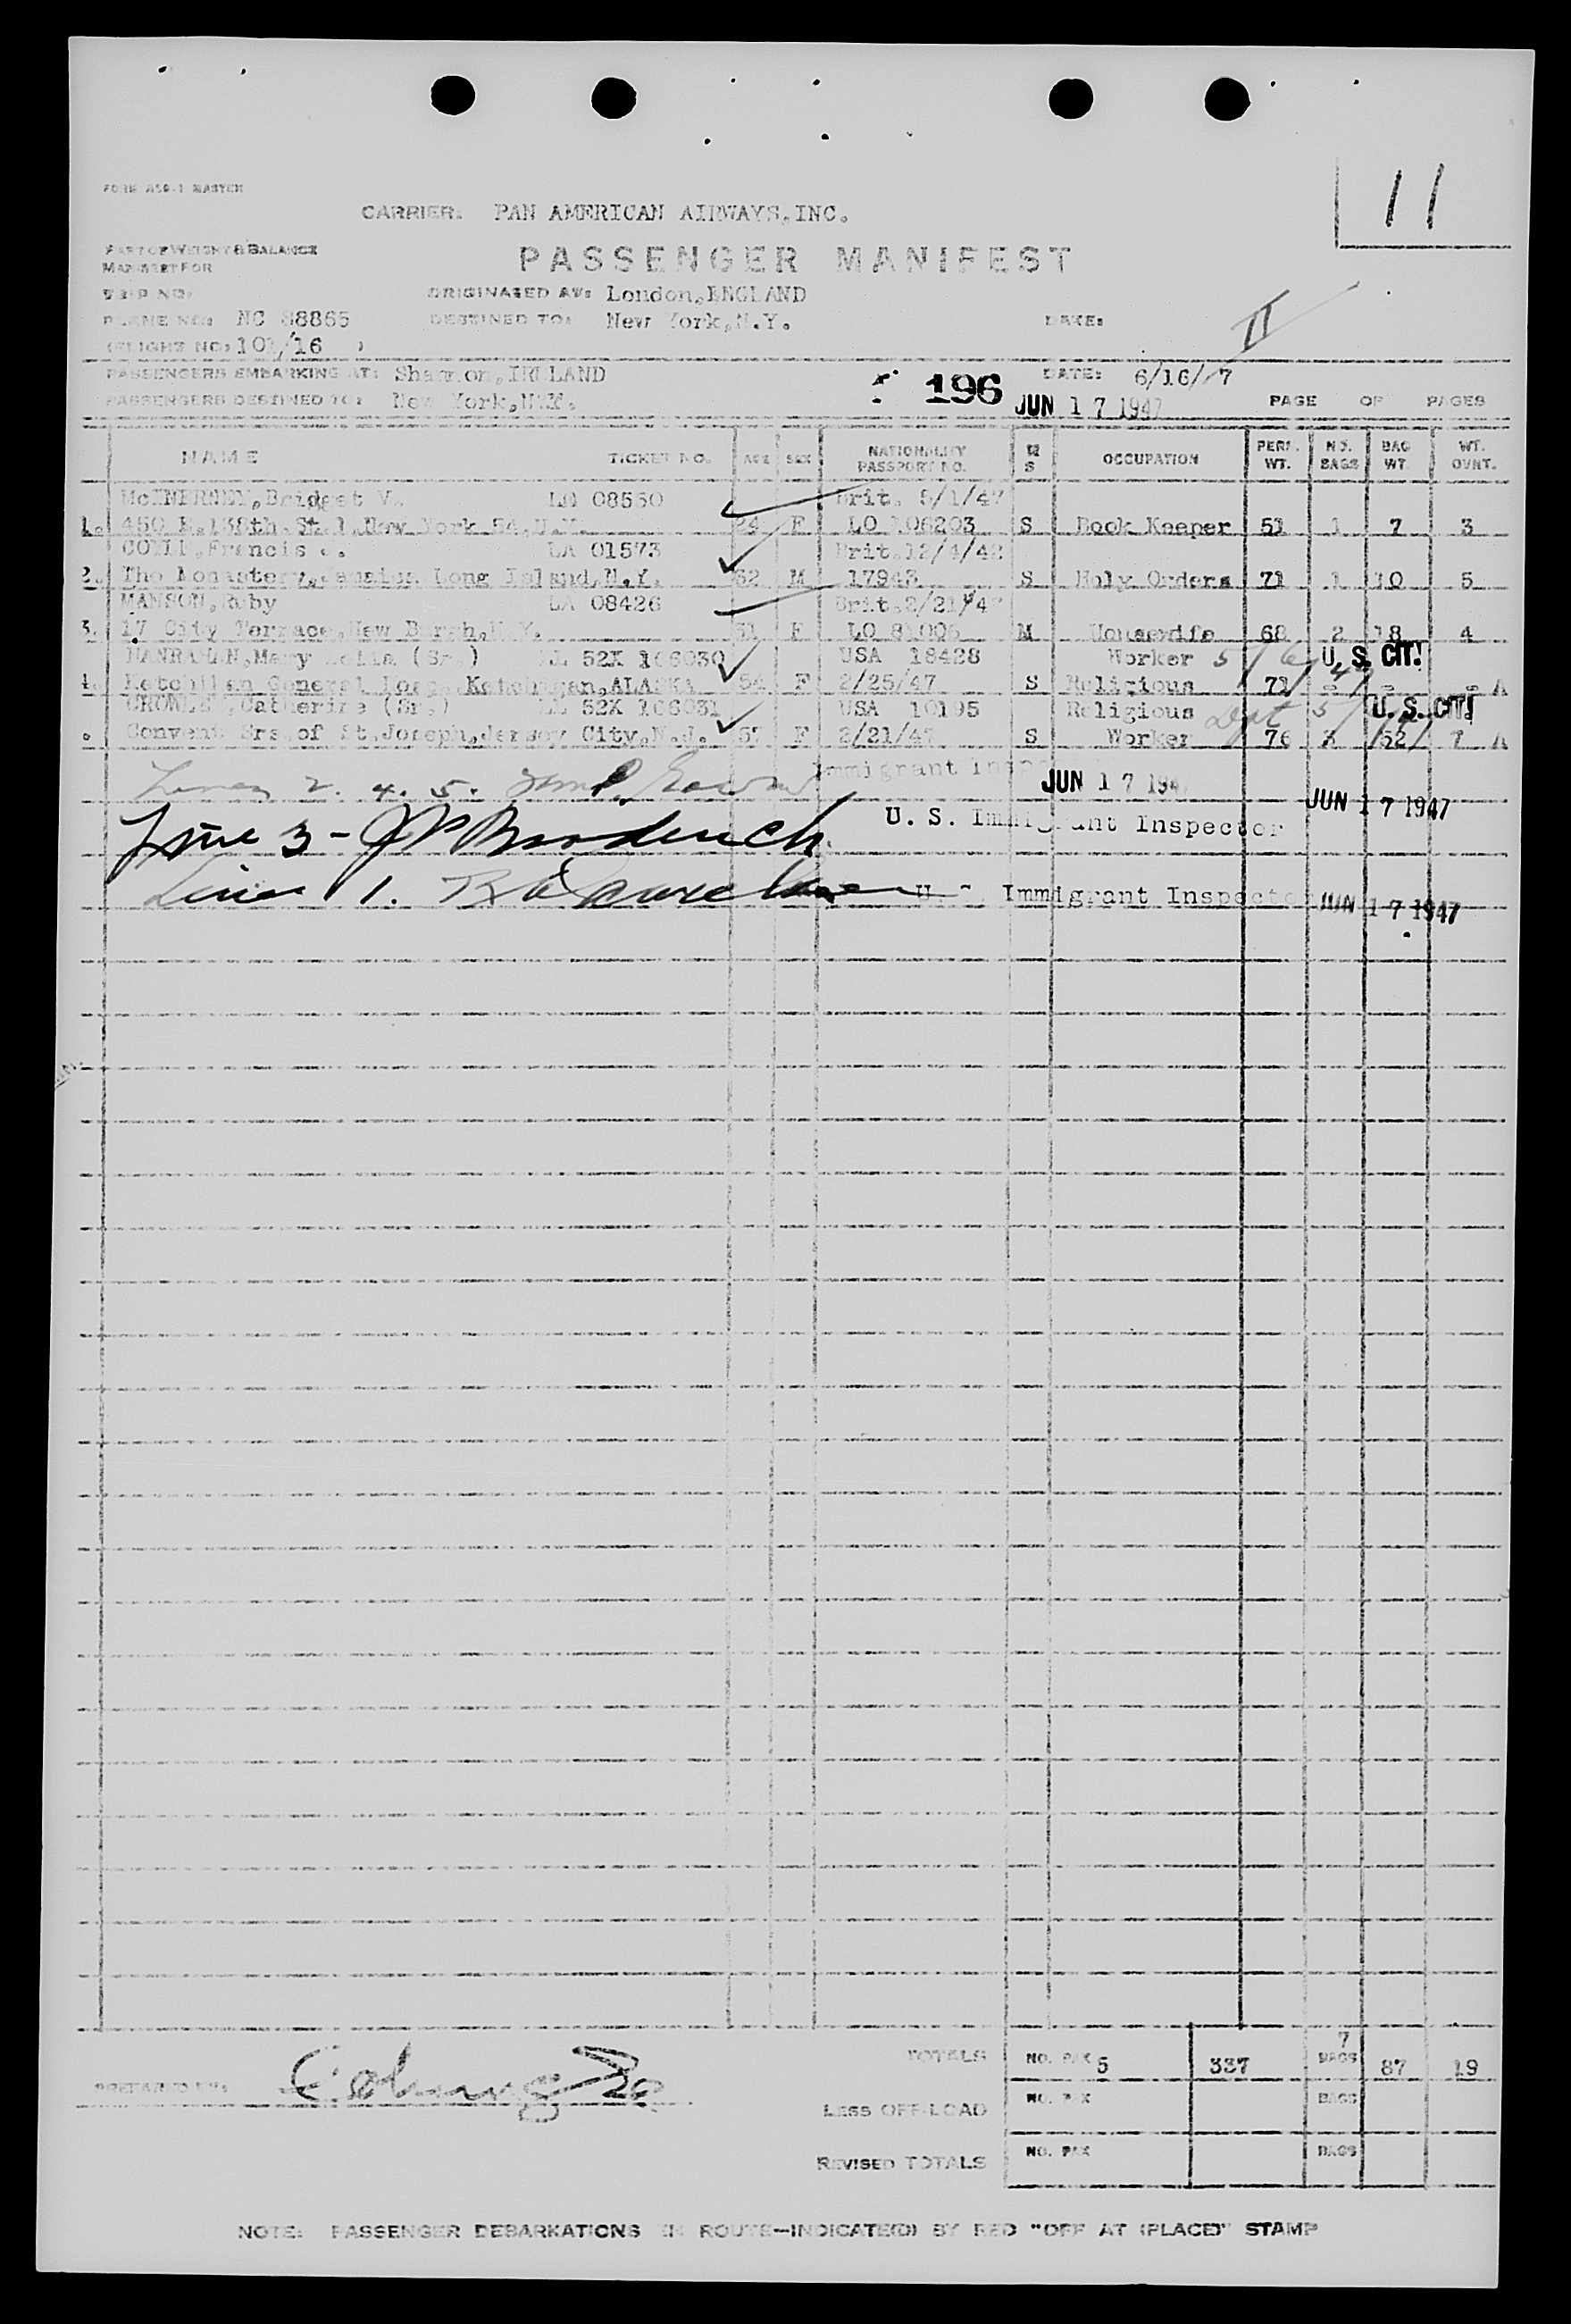 FORM ASR-1 MASTER
11
CARRIER: PAN AMERICAN AIRWAYS, INC.
PART OF WEIGHT & BALANCE
MANIFEST FOR
PASSENGER MANIFEST
TRIP NO:
ORIGINATED AT: London, ENGLAND
PLANE NO: NC 88865
DESTINED TO: New York, N.Y.
DATE:
II
(FLIGHT NO: 101/16 )
PASSENGERS EMBARKING AT: Shannon, IRELAND
196
DATE: 6/16/ 7
PASSENGERS DESTINED TO: New York, N.Y.
JUN 17 1947
PAGE OF PAGES
NAME TICKET NO. AGE SEX NATIONALITY PASSPORT NO. M S OCCUPATION PERS. WT. NO. BAGS BAG WT. WT. OVNT.
McINERNEY, Bridget V. LA 08550 Brit. 5/1/47
1. 450 E. 138th. St., New York 54, N.Y. 24 F LO 106203 S Book Keeper 51 1 7 3
Francis LA 01573 Brit.
2. The Monastery, Jamaica Long Island, N.Y. 62 M 17943 S Holy Orders 71 1 10 5
MANSON, Ruby LA 08426 Brit. 2/21/4
3. 17 City Terrace, New Burgh, N.Y. 51 F M Housewife 68 2 18 4
HANRAHAN, Mary (Sr.) 52X 106030 USA 18428 Worker U. S. CIT!
4. Ketchikan General Ketchikan, ALASKA 54 F 2/25/47 S Religious 71 A
CROWLEY, Catherine (Sr.) 52X 106031 USA 10195 Religious U. S. CIT!
. Convent Srs. of St. Joseph, Jersey City, N.J. 57 F 2/21/47 S Worker 76 3 52 7 A
Lines 2. 4. 5. Immigrant JUN 17 194
JUN 17 1947
Line 3 - U. S. Immigrant Inspector
Line 1. U. S. Immigrant Inspector JUN 17 1947
TOTALS NO. PAX 5 337 7 BAGS 87 19
PREPARED BY:
LESS OFF-LOAD NO. PAX BAGS
REVISED TOTALS NO. PAX BAGS
NOTE: PASSENGER DEBARKATIONS IN ROUTE—INDICATE(D) BY RED "OFF AT (PLACE)" STAMP